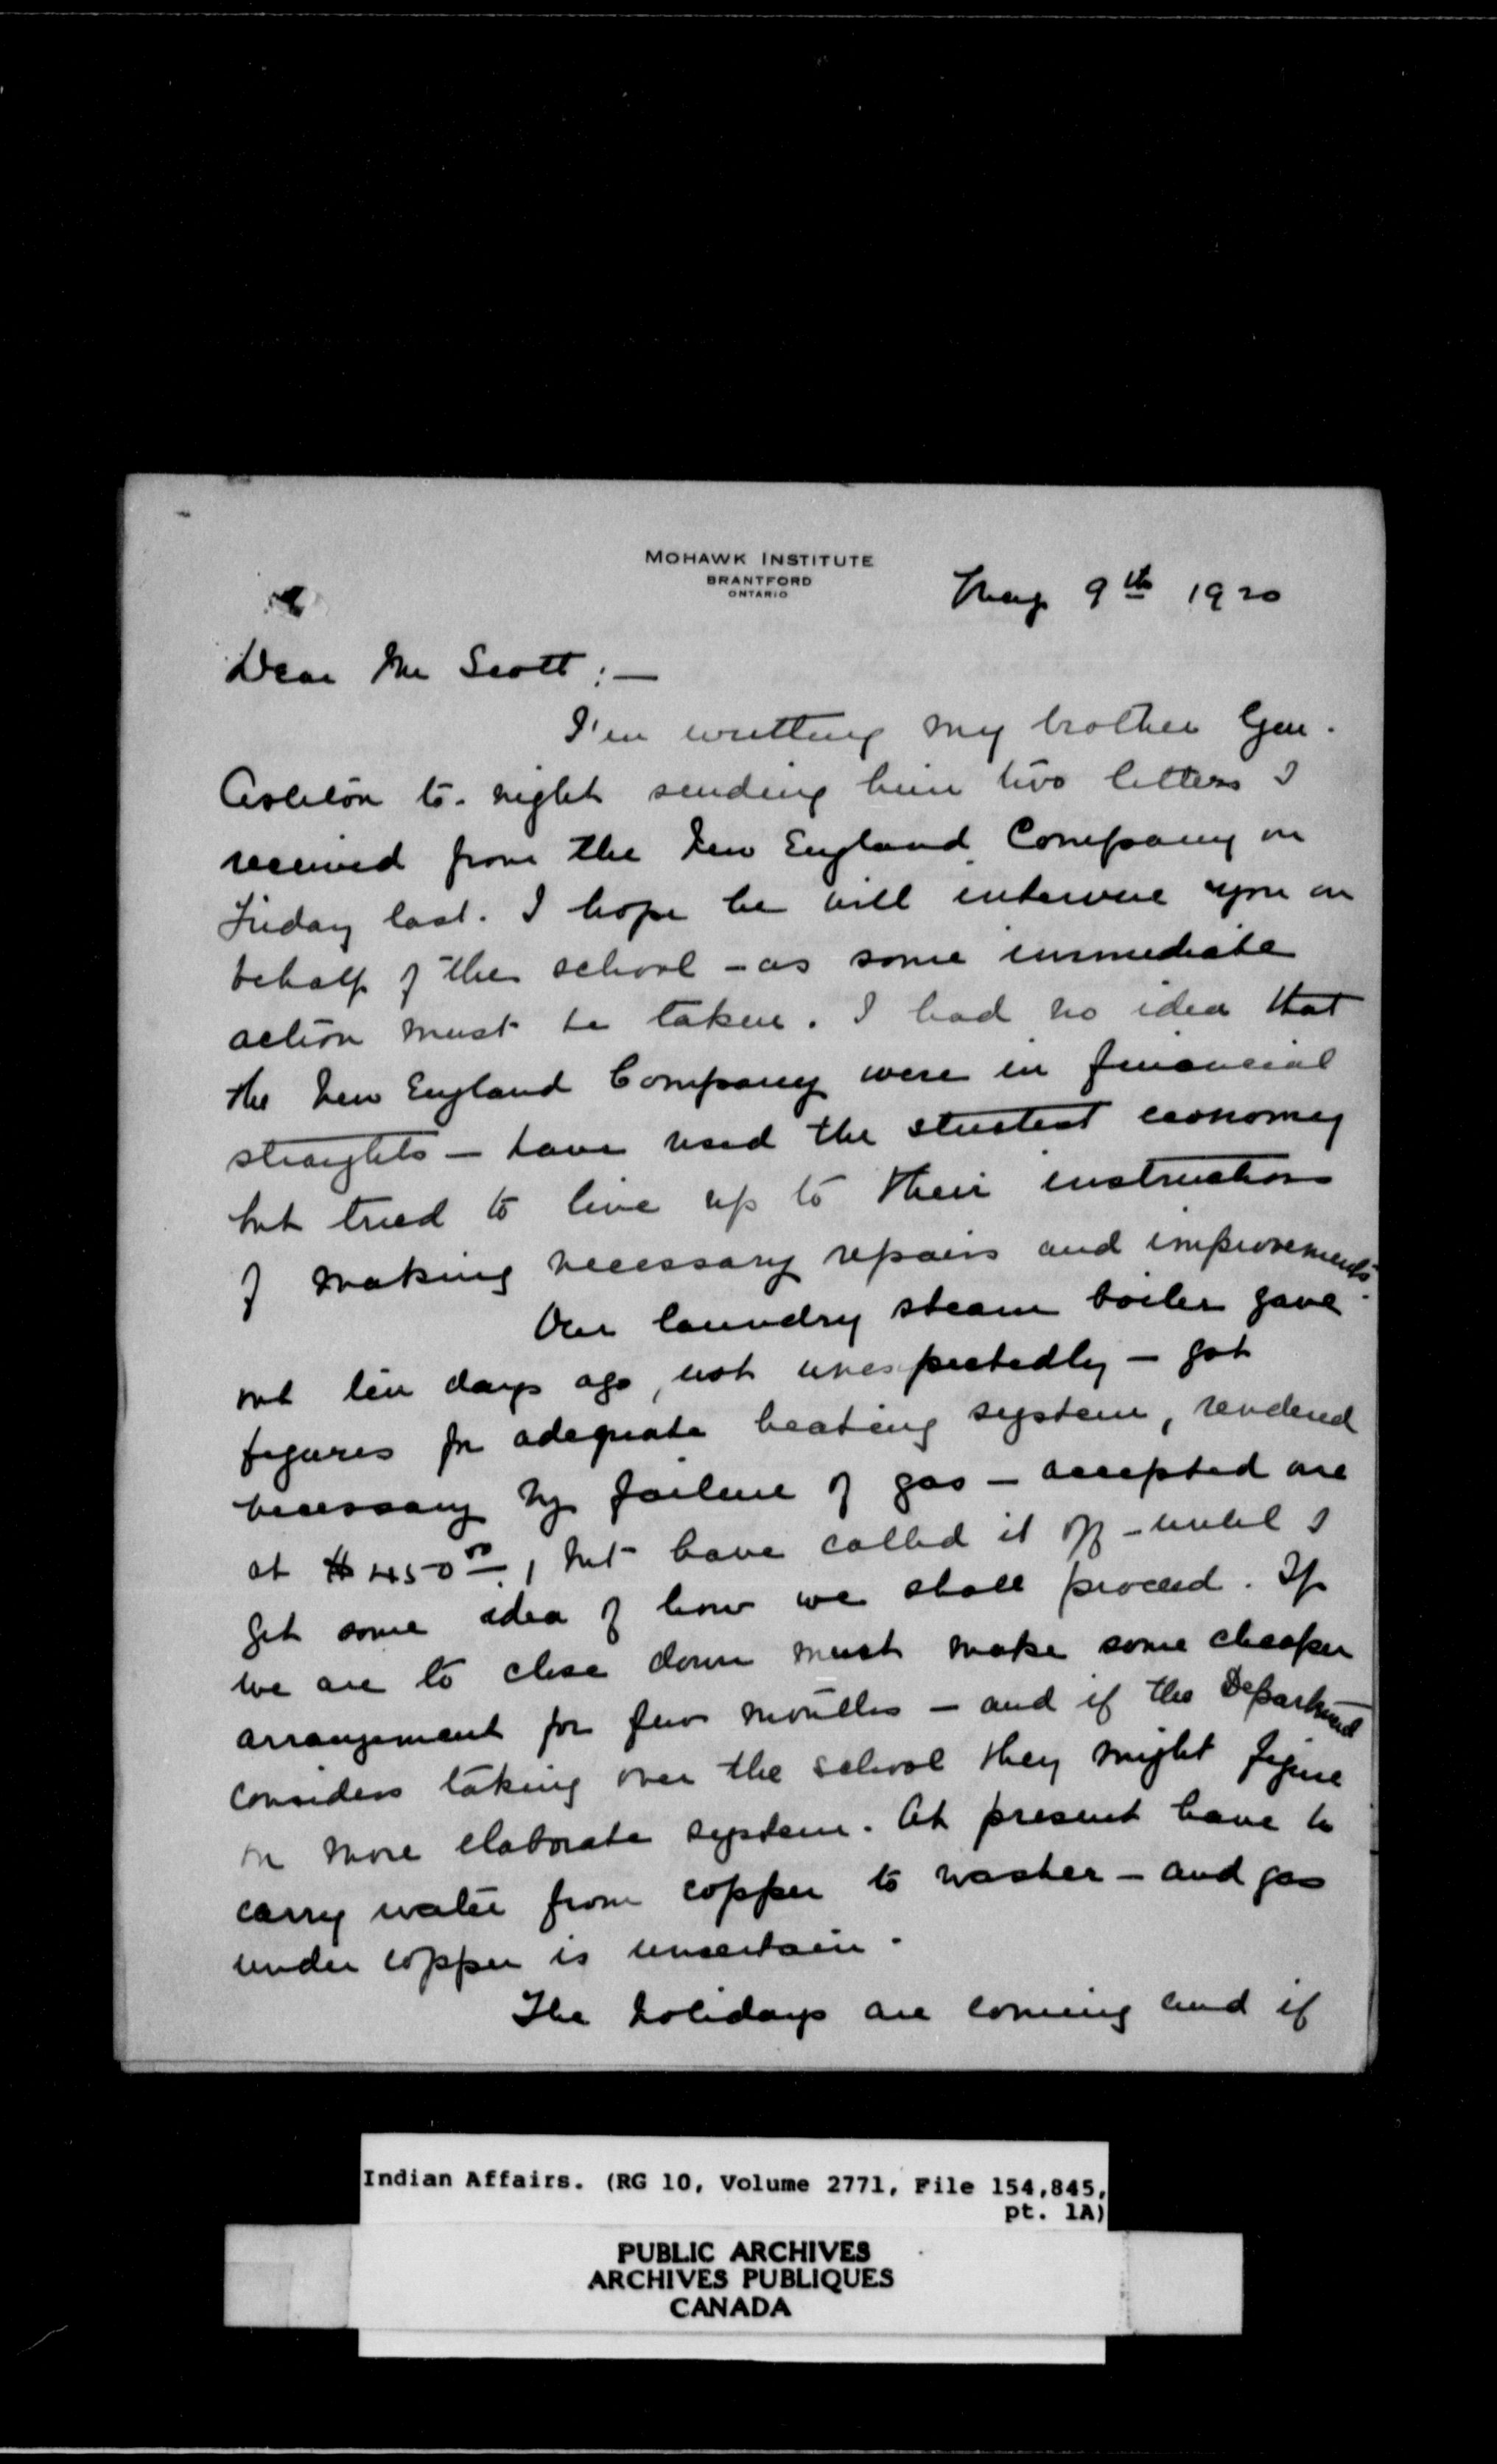 MOHAWK INSTITUTE
BRANTFORD
ONTARIO
May 9th 1920
Dear Mr Scott :—
I'm writting my brother Gen.
Ashton to-night sending him two letters I
received from the New England Company on
Friday last. I hope he will interview you on
behalf of the school - as some immediate
action must be taken. I had no idea that
the New England Company were in financial
straights — have used the strictest economy
but tried to live up to their instructions
of making necessary repairs and improvements.
Our laundry steam boiler gave
out ten days ago, not unexpectedly — got
figures for adequate heating system, rendered
necessary by failure of gas — accepted one
at $450.00, but have called it off - until I
get some idea of how we shall proceed. If
we are to close down must make some cheaper
arrangement for few months — and if the Department
considers taking over the school they might figure
on more elaborate system. At present have to
carry water from copper to washer — and gas
under copper is uncertain.
The holidays are coming and if
Indian Affairs. (RG 10, Volume 2771, File 154,845,
pt. 1A)
PUBLIC ARCHIVES
ARCHIVES PUBLIQUES
CANADA